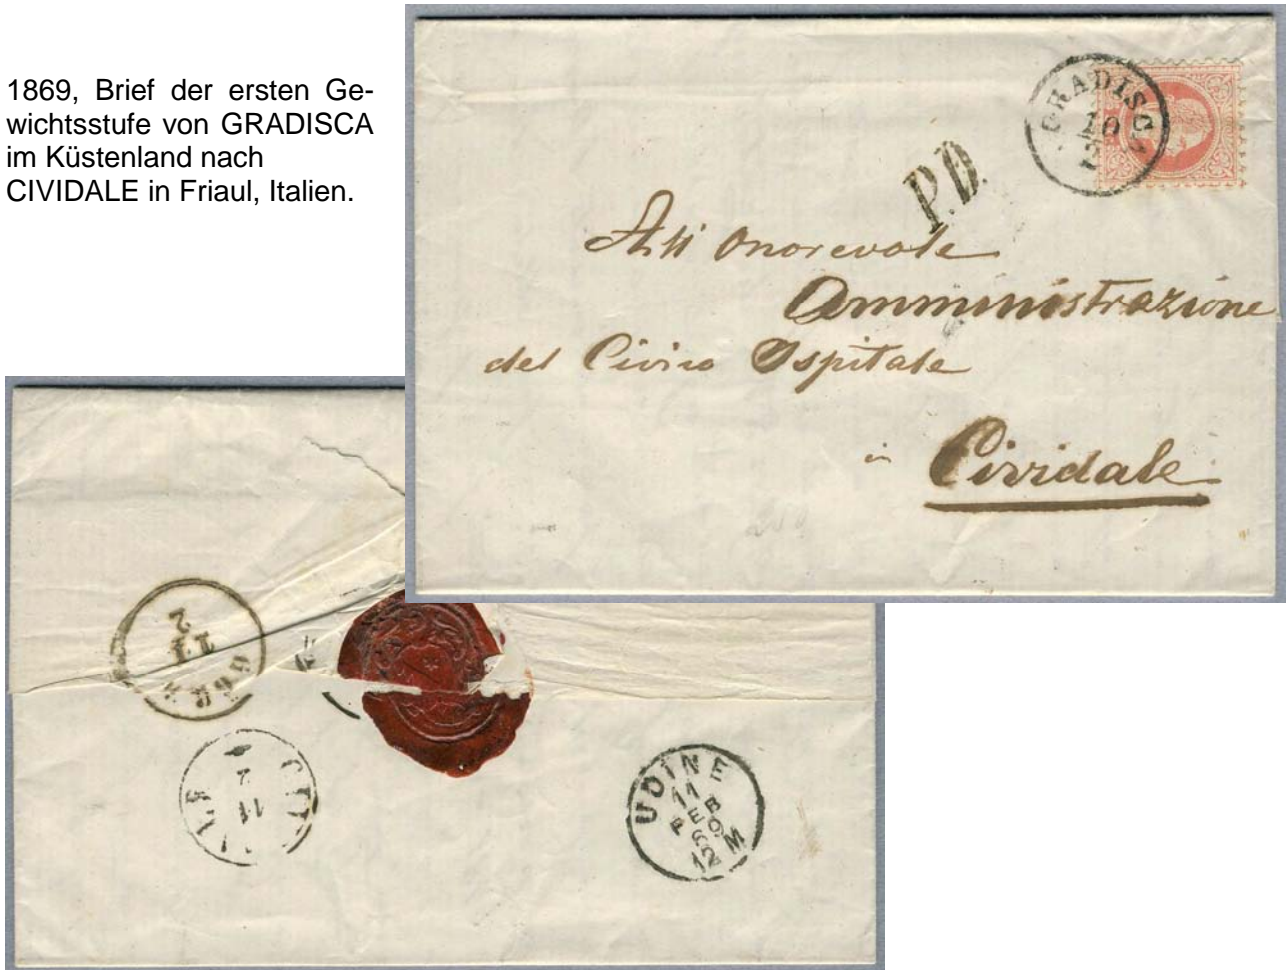 1869, Brief der ersten Ge-
wichtsstufe von GRADISCA
im Küstenland nach
CIVIDALE in Friaul, Italien.
GRADISCA
10
2
P.D.
All onorevole
Amministrazione
del Civico Ospitale
in Cividale
GÖRZ
11
2
11
2
UDINE
11
FEB
69
12 M